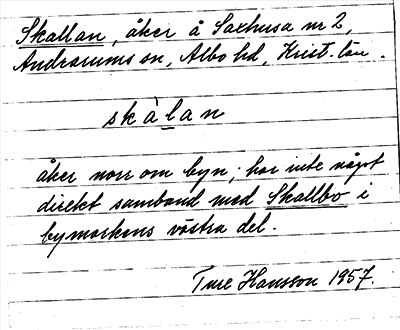 Skallan, åker å Saxhusa nr 2,
Andrarums sn, Albo hd, Krist. län.
skàlan
åker norr om byn; har inte något
direkt samband med Skallbo i
bymarkens västra del.
Ture Hansson 1957.